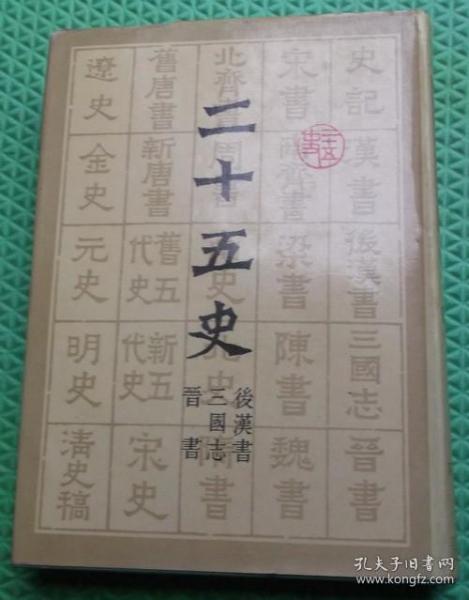 二十五史
後漢書
三國志
晉書
史記
漢書
後漢書
三國志
晉書
宋書
南齊書
梁書
陳書
魏書
北齊書
周書
北史
隋書
舊唐書
新唐書
舊五代史
新五代史
宋史
遼史
金史
元史
明史
清史稿
孔夫子旧书网
www.kongfz.com